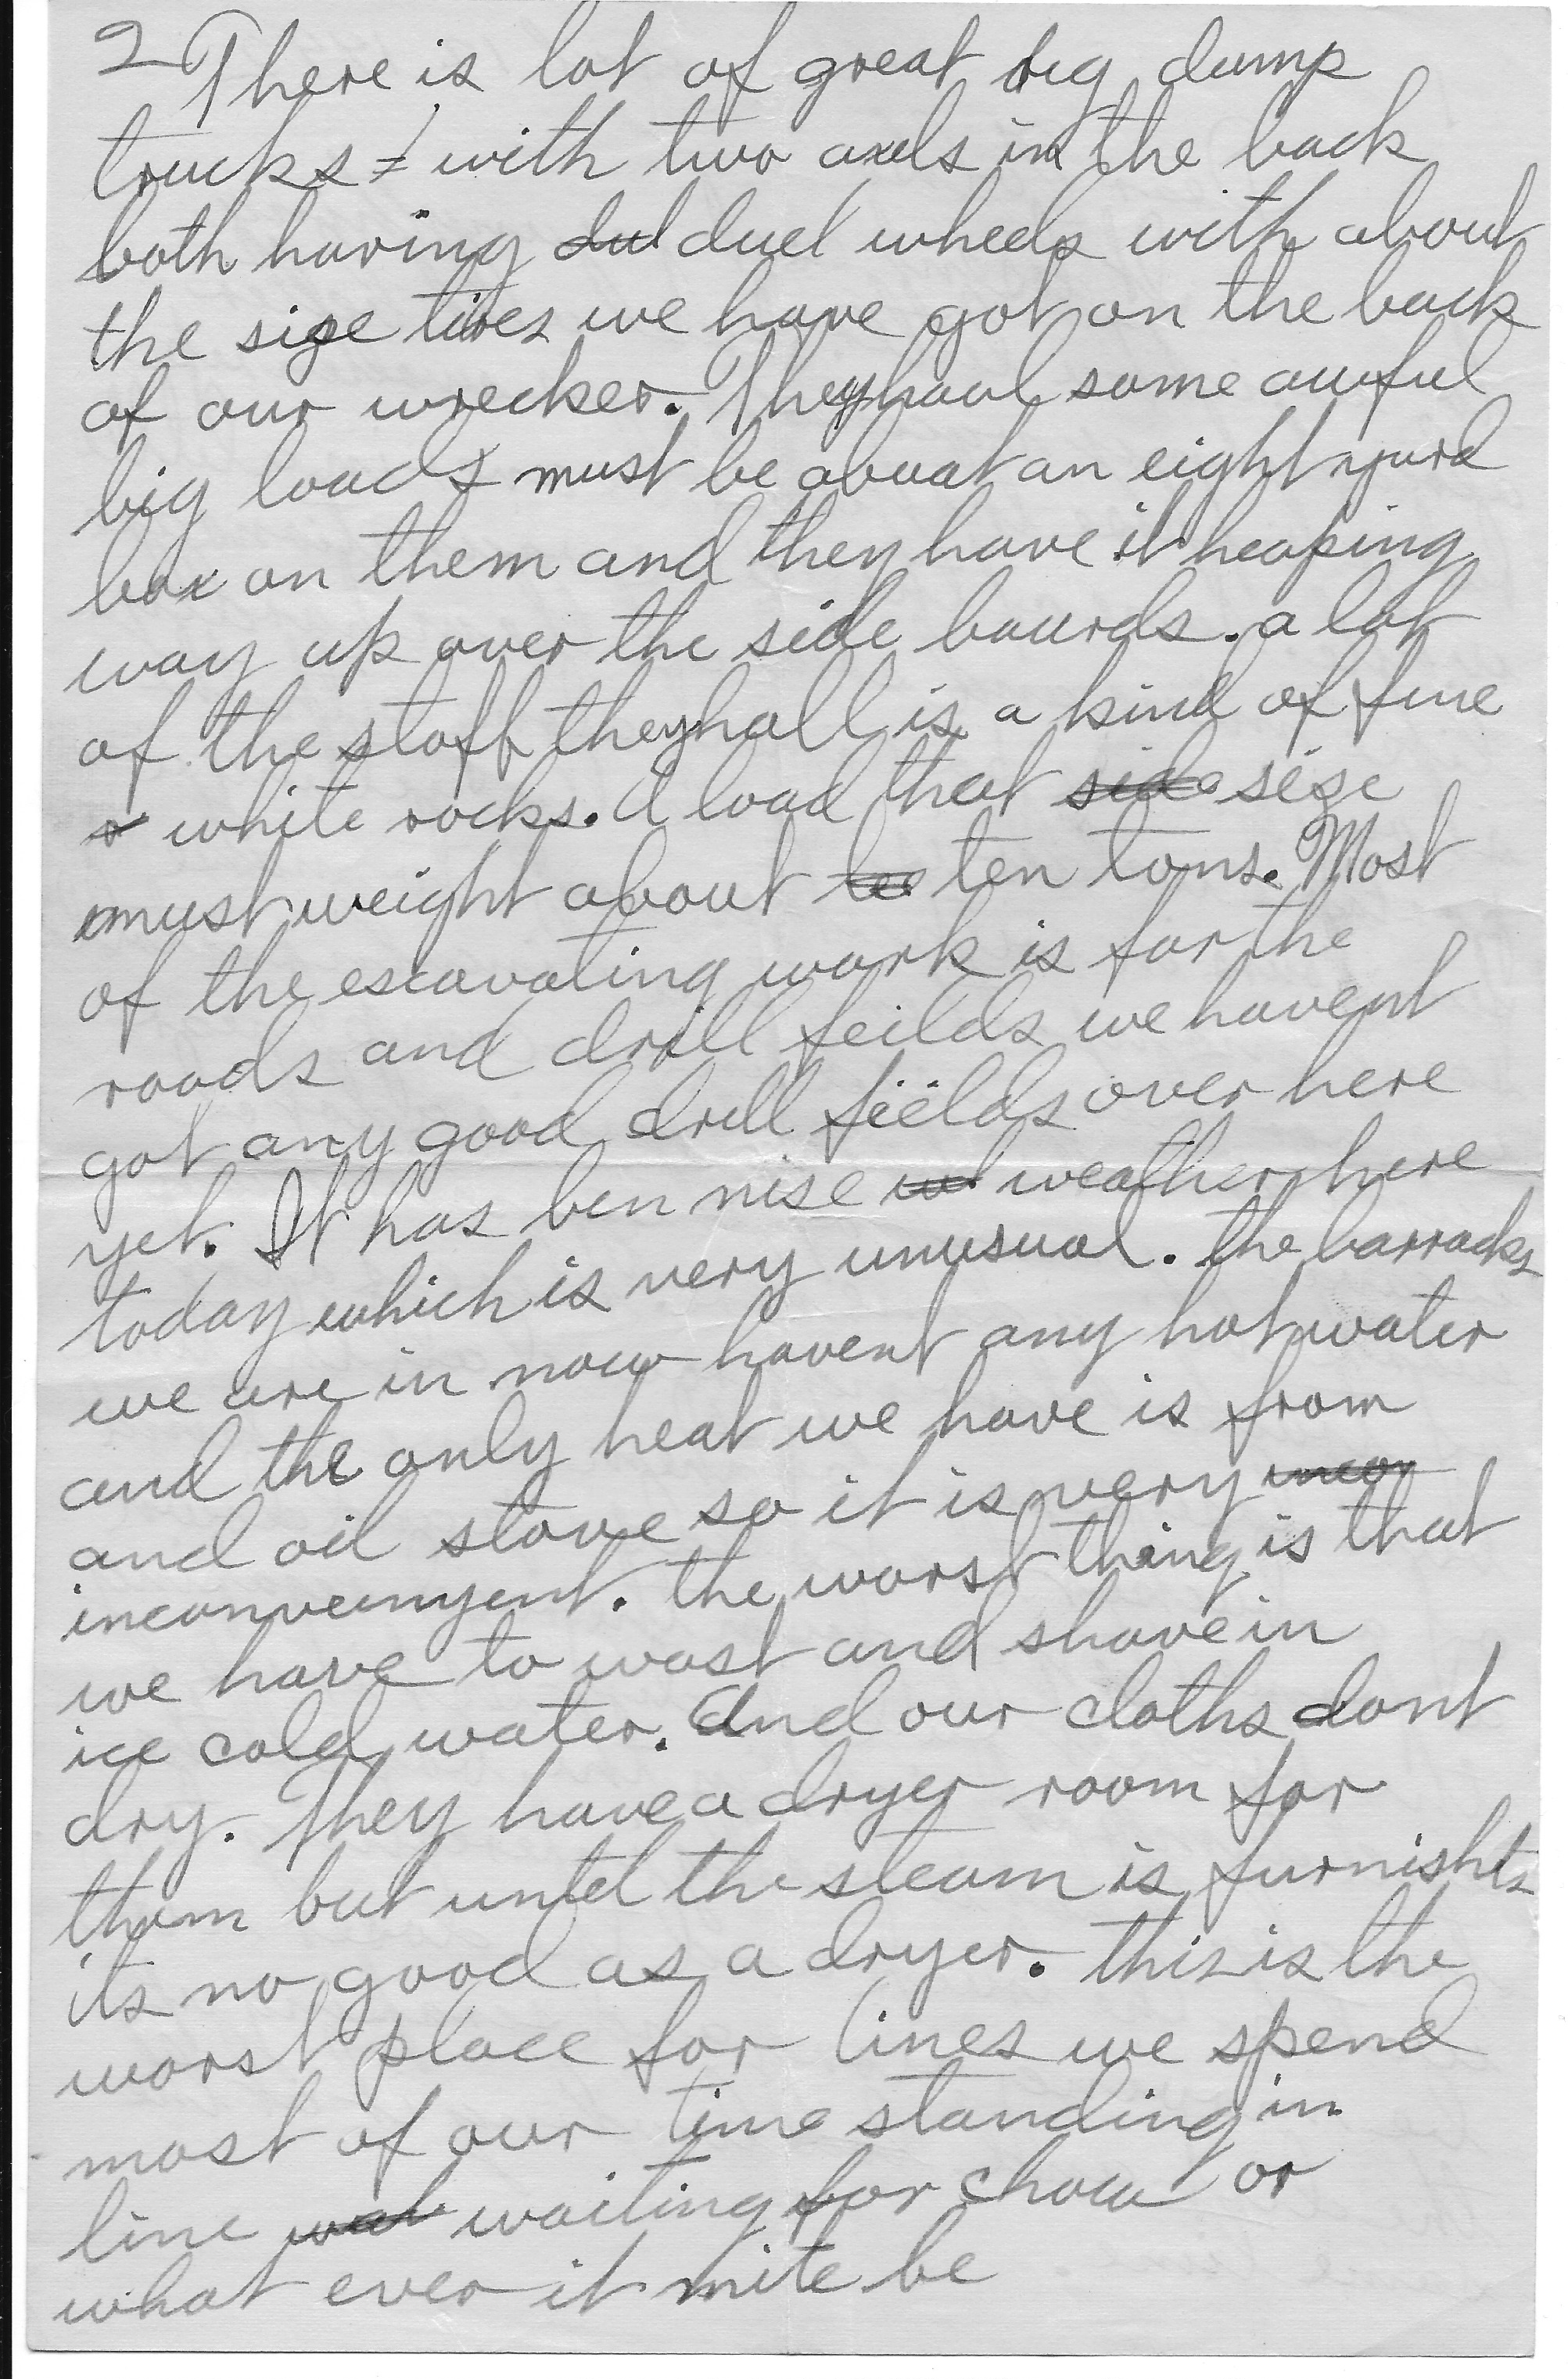 2 There is lot of great big dump
trucks = with two axels in the back
both having dul duel wheels with about
the size tires we have got on the back
of our wrecker. They haul some awful
big loads must be about an eight yard
box on them and they have it heaping
way up over the side bourds. a lot
of the stoff they hall is a kind of fine
white rocks. A load that side size
must weight about ten tons. Most
of the escavating work is for the
roads and drill feilds we havent
got any good drill fields over here
yet. It has ben nise weather here
today which is very unusual. the barracks
we are in now havent any hot water
and the only heat we have is from
and oil stove so it is very incov
inconveinyent. the worst thing is that
we have to wast and shave in
ice cold water. And our cloths dont
dry. They have a dryer room for
them but until the steam is furnisht
its no good as a dryer. this is the
worst place for lines we spend
most of our time standing in
line wat waiting for chow or
what ever it mite be